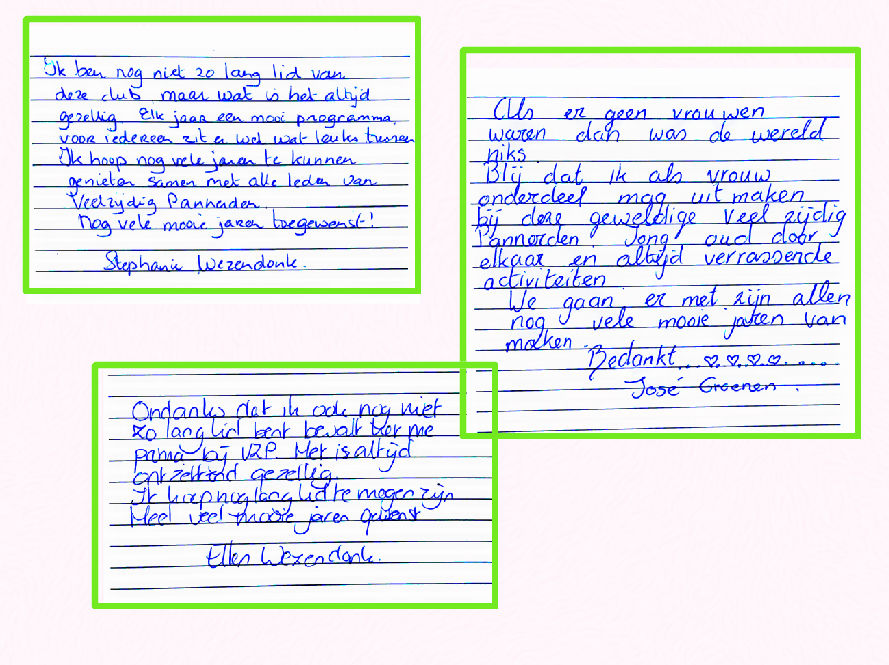 Ik ben nog niet zo lang lid van
deze club maar wat is het altijd
gezellig. Elk jaar een mooi programma,
voor iedereen zit er wel wat leuks tussen
Ik hoop nog vele jaren te kunnen
genieten samen met alle leden van
Veelzijdig Pannerden.
Nog vele mooie jaren toegewenst!
Stephanie Wezendonk.
Als er geen vrouwen
waren dan was de wereld
niks.
Blij dat ik als vrouw
onderdeel mag uit maken
bij deze geweldige Veel zijdig
Pannerden. Jong oud door
elkaar en altijd verrassende
activiteiten.
We gaan er met zijn allen
nog vele mooie jaren van
maken.
Bedankt...♡.♡.♡.♡.....
José Groenen.
Ondanks dat ik ook nog niet
zo lang lid bent bevalt het me
prima bij VZP. Het is altijd
ontzettend gezellig.
Ik hoop nog lang lid te mogen zijn
Heel veel mooie jaren gewenst
Ellen Wezendonk.